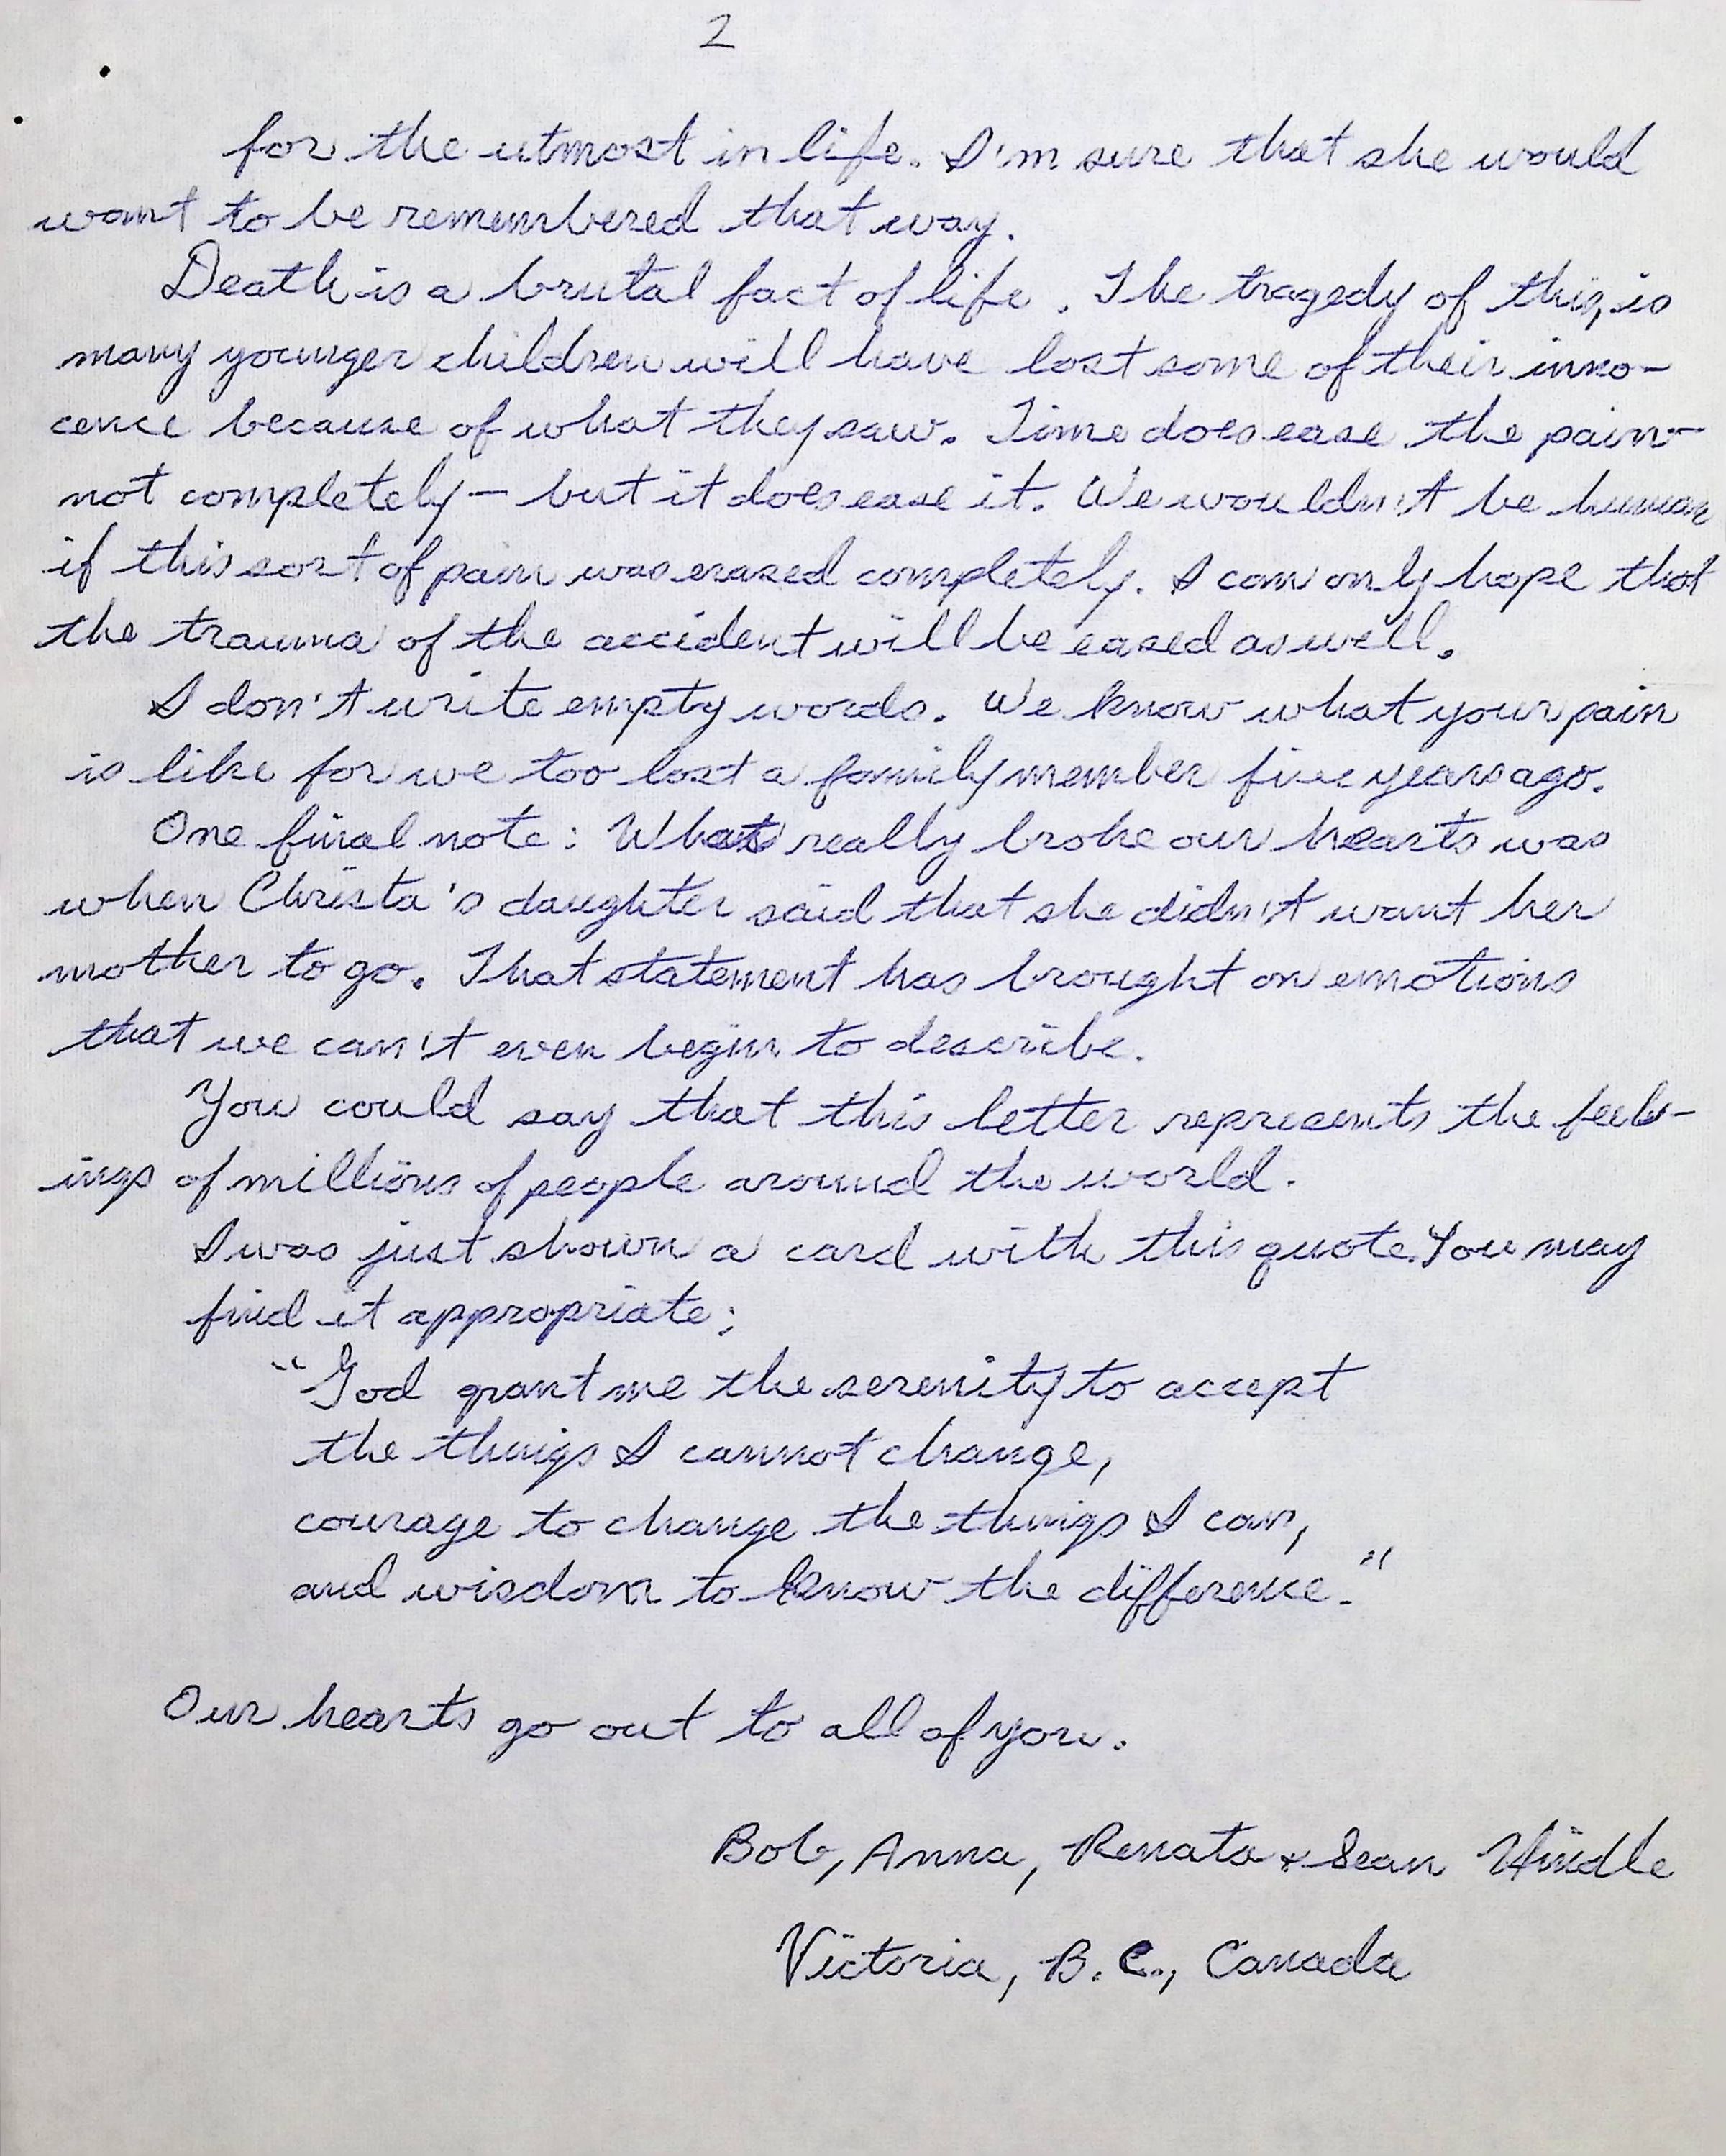 2
for the utmost in life. I'm sure that she would
want to be remembered that way.
Death is a brutal fact of life. The tragedy of this, is
many younger children will have lost some of their inno-
cence because of what they saw. Time does ease the pain-
not completely - but it does ease it. We wouldn't be human
if this sort of pain was erased completely. I can only hope that
the trauma of the accident will be eased as well.
I don't write empty words. We know what your pain
is like for we too lost a family member five years ago.
One final note: What really broke our hearts was
when Christa's daughter said that she didn't want her
mother to go. That statement has brought on emotions
that we can't even begin to describe.
You could say that this letter represents the feel-
ings of millions of people around the world.
I was just shown a card with this quote. You may
find it appropriate:
"God grant me the serenity to accept
the things I cannot change,
courage to change the things I can,
and wisdom to know the difference."
Our hearts go out to all of you.
Bob, Anna, Renata & Sean Hindle
Victoria, B.C., Canada